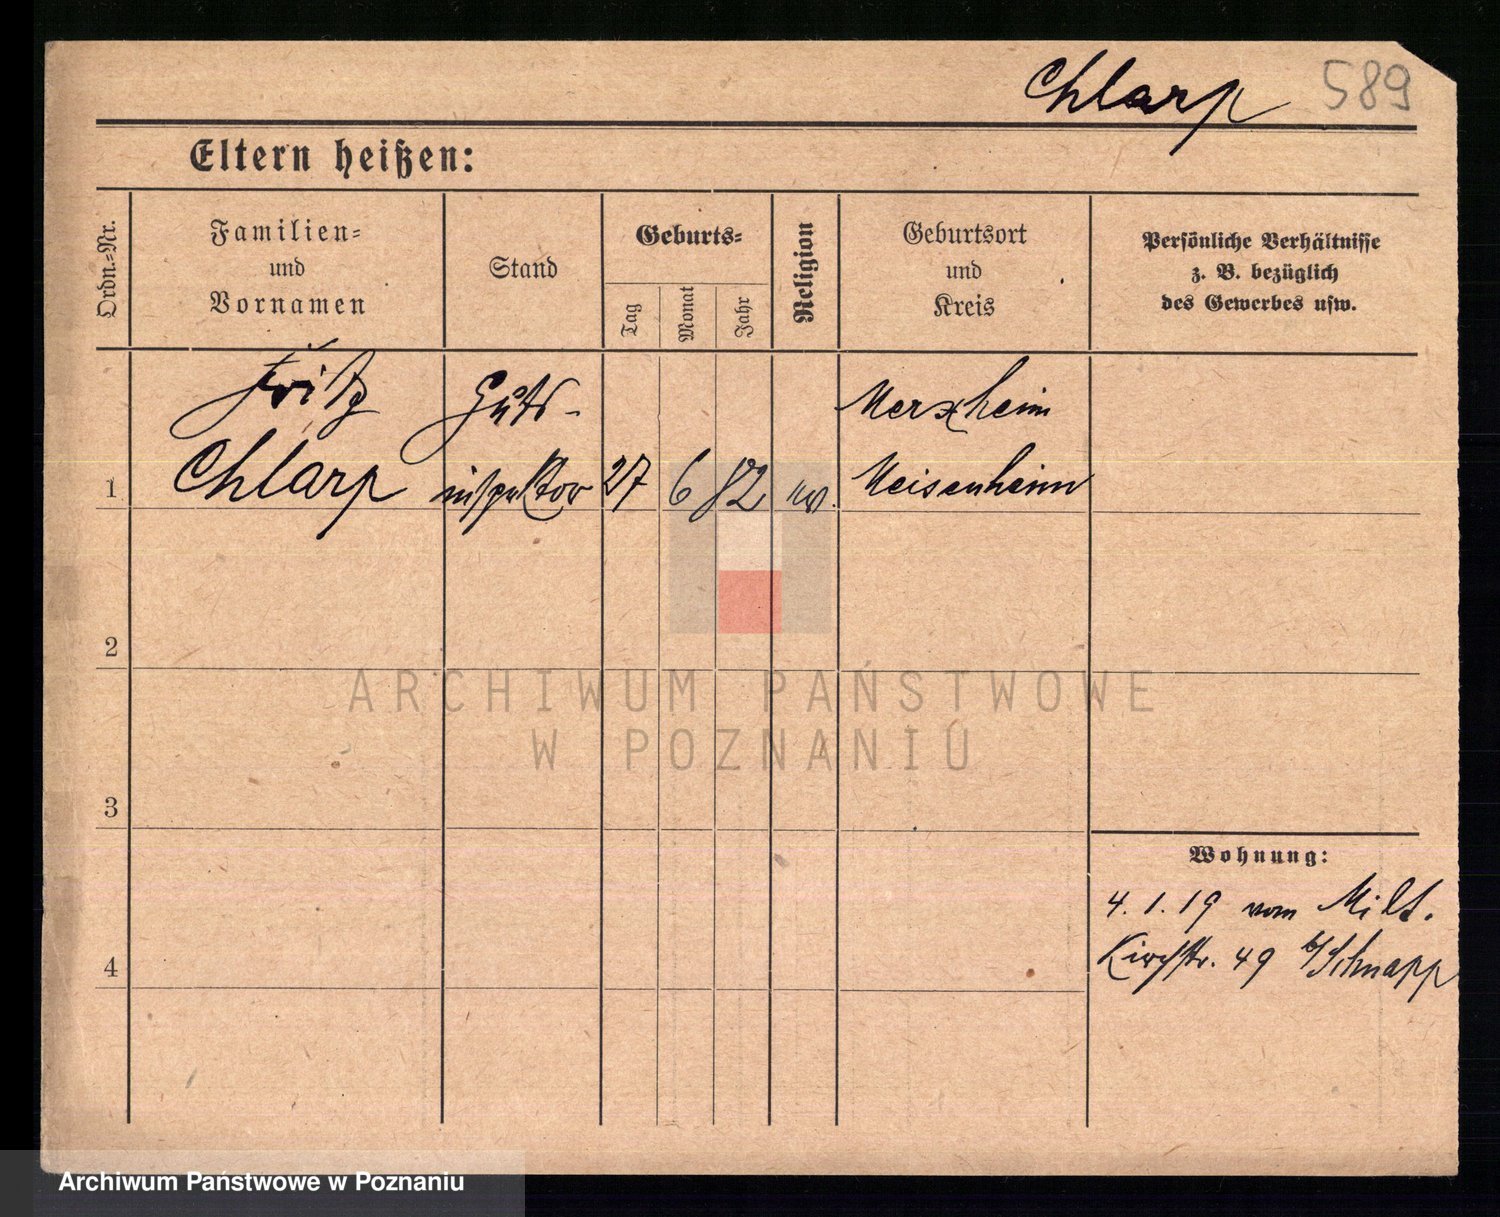 Chlarp 589
Eltern heißen:
Ordn.-Nr.
Familien-
und
Vornamen
Stand
Geburts-
Tag
Monat
Jahr
Religion
Geburtsort
und
Kreis
Persönliche Verhältnisse
z. B. bezüglich
des Gewerbes usw.
Fritz Guts- Merxheim
1 Chlarp inspektor 27 6 82 ev. Meisenheim
2
ARCHIWUM PAŃSTWOWE
W POZNANIU
3
Wohnung:
4. 1. 19 vom Milt.
4 Kirchstr. 49 b/Schnapp
Archiwum Państwowe w Poznaniu